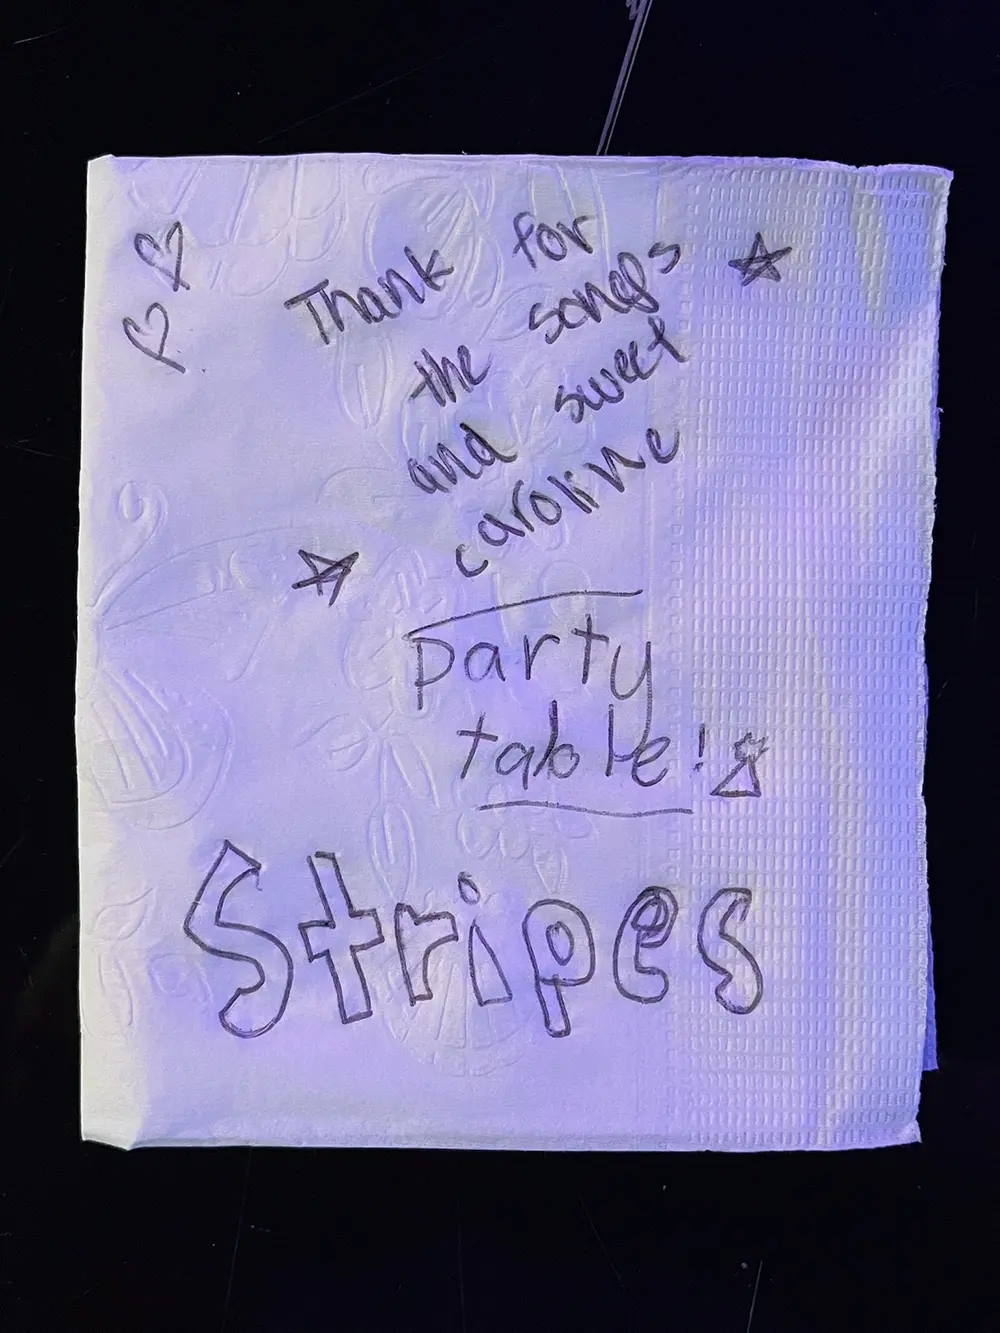 Thank for
the songs
and sweet
caroline
party
table!
Stripes